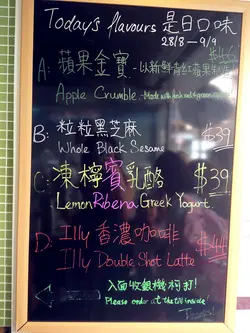 Today's flavours 是日口味
28/8 – 9/9
A: 蘋果金寶 -以新鮮青紅蘋果
Apple Crumble - Made with fresh red & green
B: 粒粒黑芝麻 $39
Whole Black Sesame
C: 凍檸賓乳酪 $39
Lemon Ribena Greek Yogurt
D: Illy 香濃咖啡 $44
Illy Double Shot Latte
入面收銀機柯打!
Please order at the till inside!